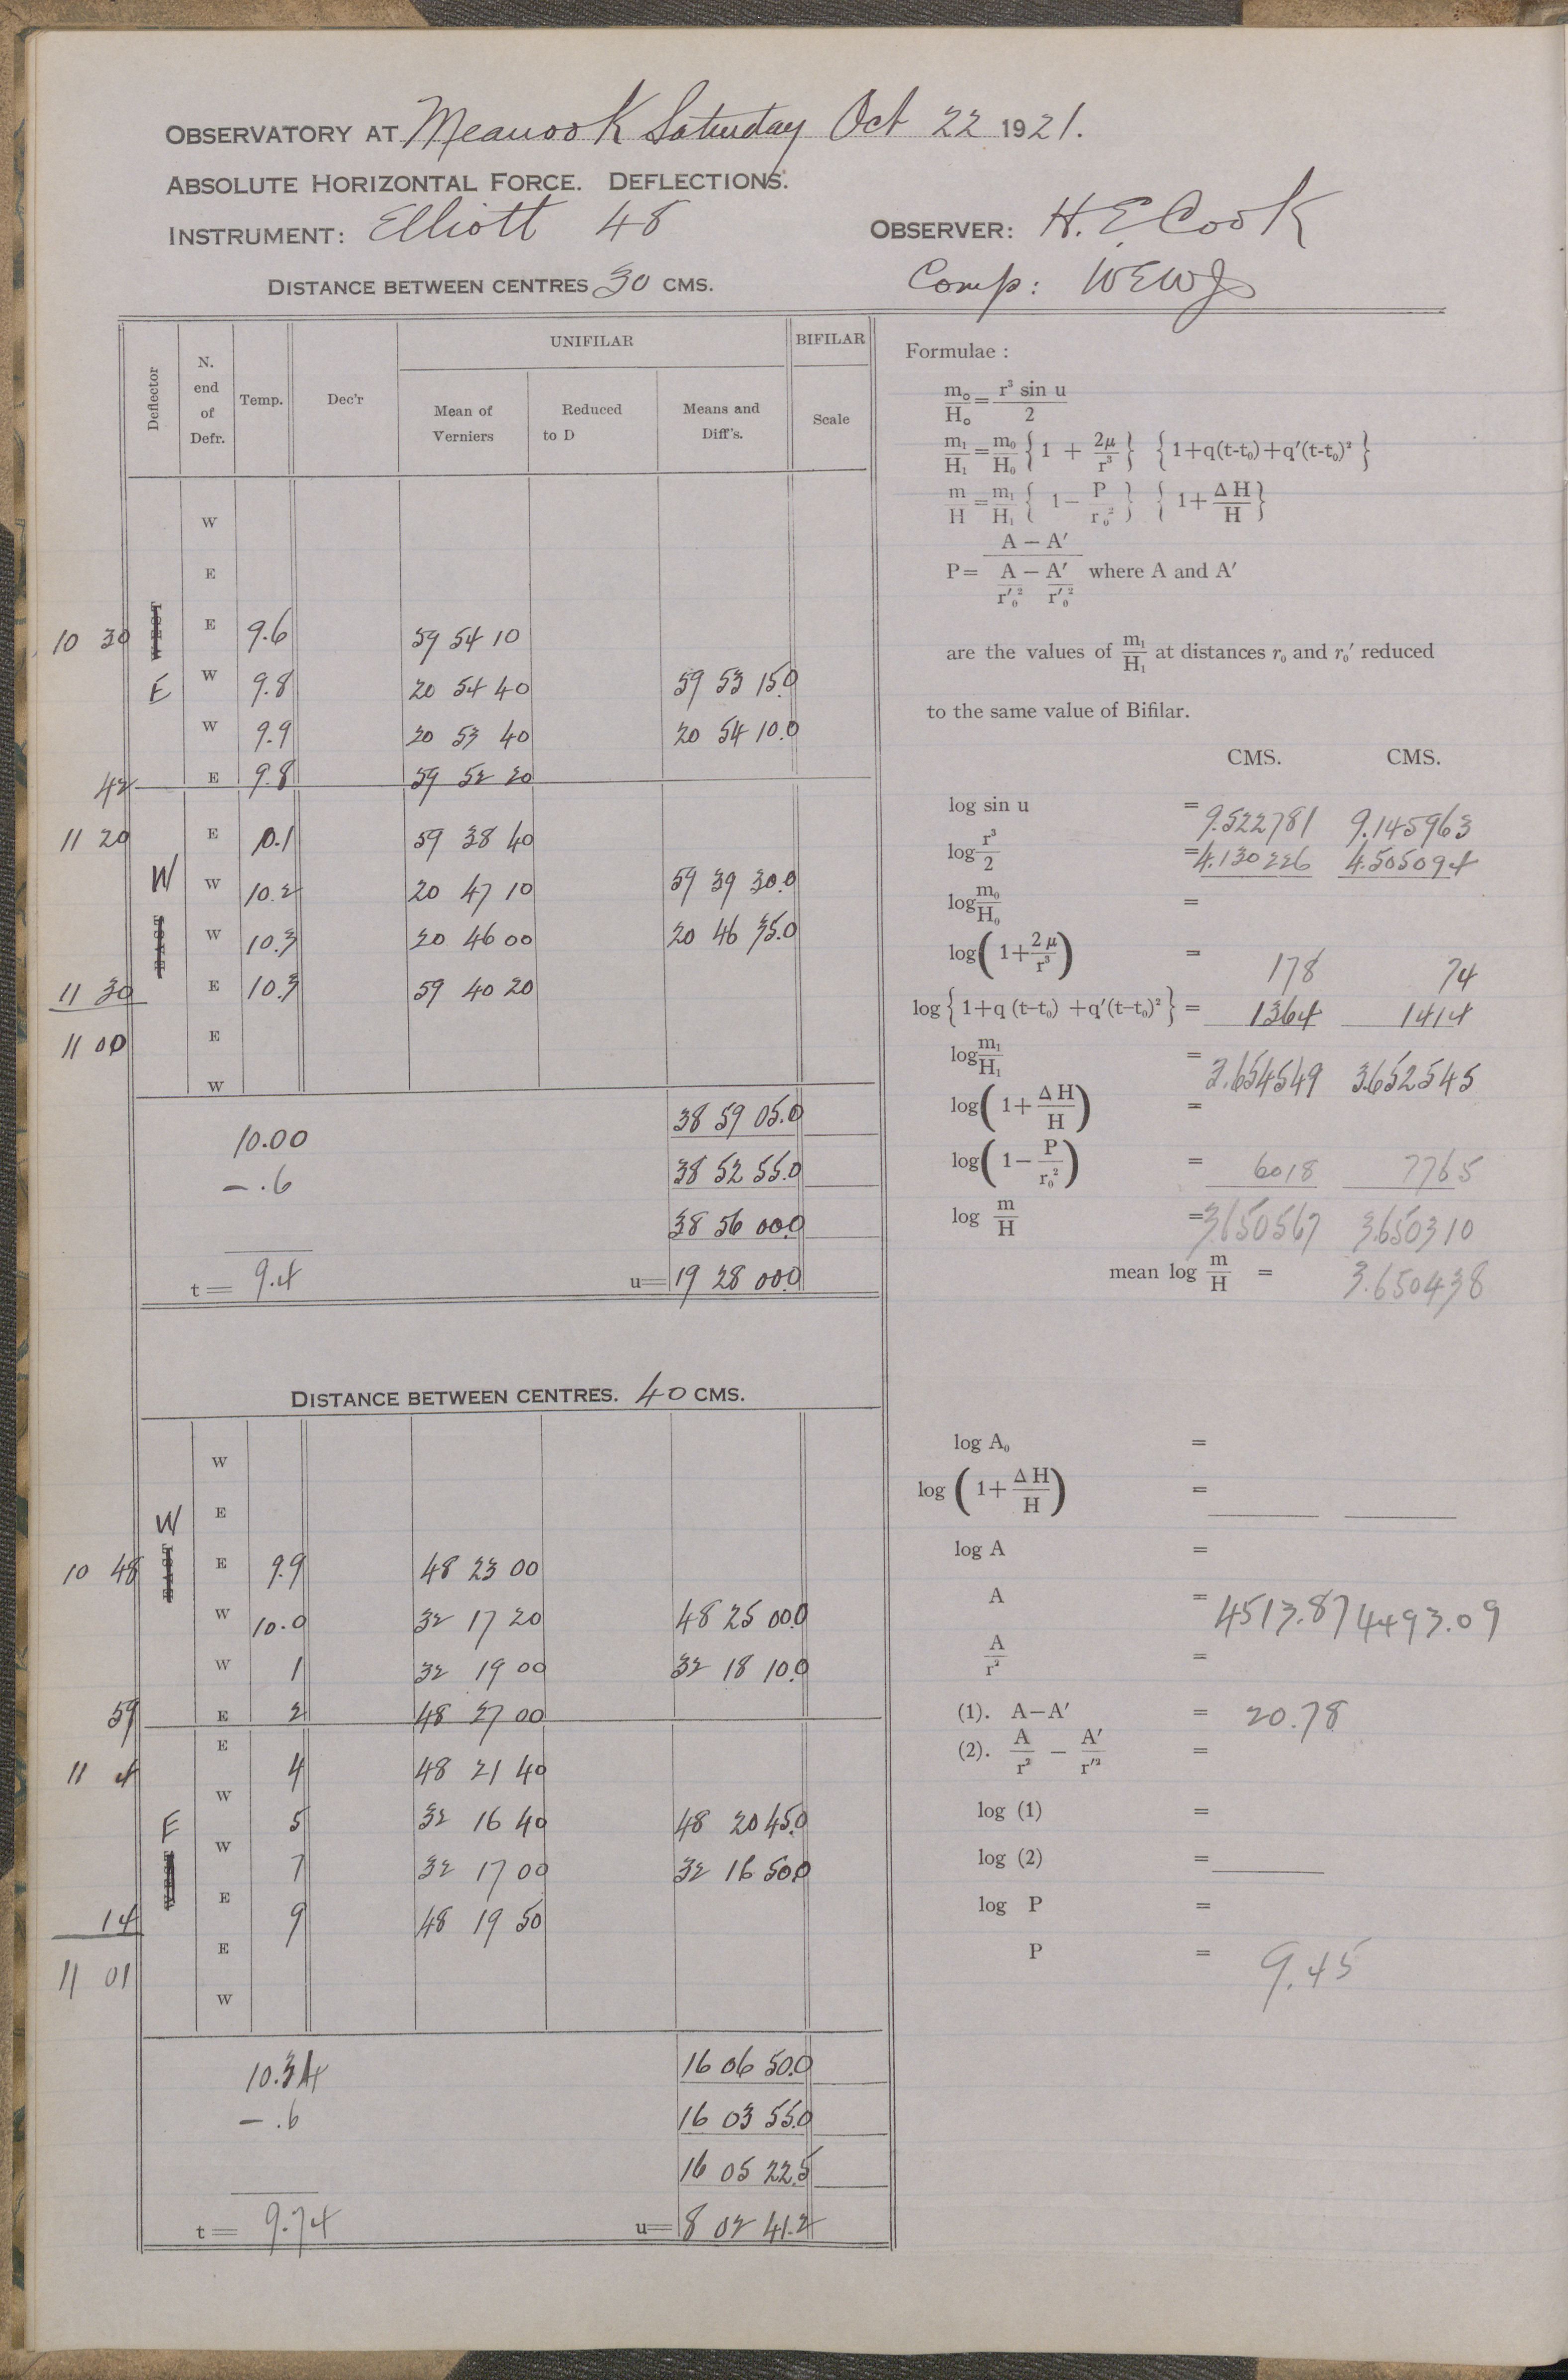 OBSERVATORY AT Meanook Saturday Oct 22 1921.
ABSOLUTE HORIZONTAL FORCE. DEFLECTIONS.
INSTRUMENT: Elliott 48 OBSERVER: H. E. Cook
DISTANCE BETWEEN CENTRES 30 CMS. Comp: WEWJ
Deflector N. end of Defr. Temp. Dec'r UNIFILAR BIFILAR
Mean of Verniers Reduced to D Means and Diff's. Scale
W
E
10 30 WEST E 9.6 59 54 10
E W 9.8 20 54 40 59 53 15.0
W 9.9 20 53 40 20 54 10.0
42 E 9.8 59 52 20
11 20 E 10.1 59 38 40
W W 10.2 20 47 10 59 39 30.0
EAST W 10.3 20 46 00 20 46 35.0
11 30 E 10.3 59 40 20
11 00 E
W
38 59 05.0
10.00
-.6 38 52 55.0
38 56 00.0
t= 9.4 u= 19 28 00.0
DISTANCE BETWEEN CENTRES. 40 CMS.
W
W E
10 48 EAST E 9.9 48 23 00
W 10.0 32 17 20 48 25 00.0
W 1 32 19 00 32 18 10.0
59 E 2 48 27 00
E
11 4 4 48 21 40
W
E 5 32 16 40 48 20 45.0
W
WEST 7 32 17 00 32 16 50.0
E
14 9 48 19 50
E
11 01
W
10.34 16 06 50.0
-.6 16 03 55.0
16 05 22.5
t= 9.74 u= 8 02 41.2
Formulae :
m₀/H₀ = r³ sin u/2
m₁/H₁ = m₀/H₀ {1 + 2μ/r³} {1+q(t-t₀)+q′(t-t₀)²}
m/H = m₁/H₁ {1 − P/r₀²} {1+ ΔH/H}
P= A − A′ / A/r′₀² − A′/r′₀² where A and A′
are the values of m₁/H₁ at distances r₀ and r₀′ reduced
to the same value of Bifilar.
CMS. CMS.
log sin u = 9.522781 9.145963
log r³/2 = 4.130226 4.505094
log m₀/H₀ =
log(1+2μ/r³) = 178 74
log{1+q (t-t₀) +q′(t-t₀)²} = 1364 1414
log m₁/H₁ = 3.654549 3.652545
log(1+ΔH/H) =
log(1−P/r₀²) = 6018 7765
log m/H = 3.650567 3.650310
mean log m/H = 3.650438
log A₀ =
log (1+ΔH/H) =
log A =
A = 4513.87 4493.09
A/r² =
(1). A−A′ = 20.78
(2). A/r² − A′/r′² =
log (1) =
log (2) =
log P =
P = 9.45